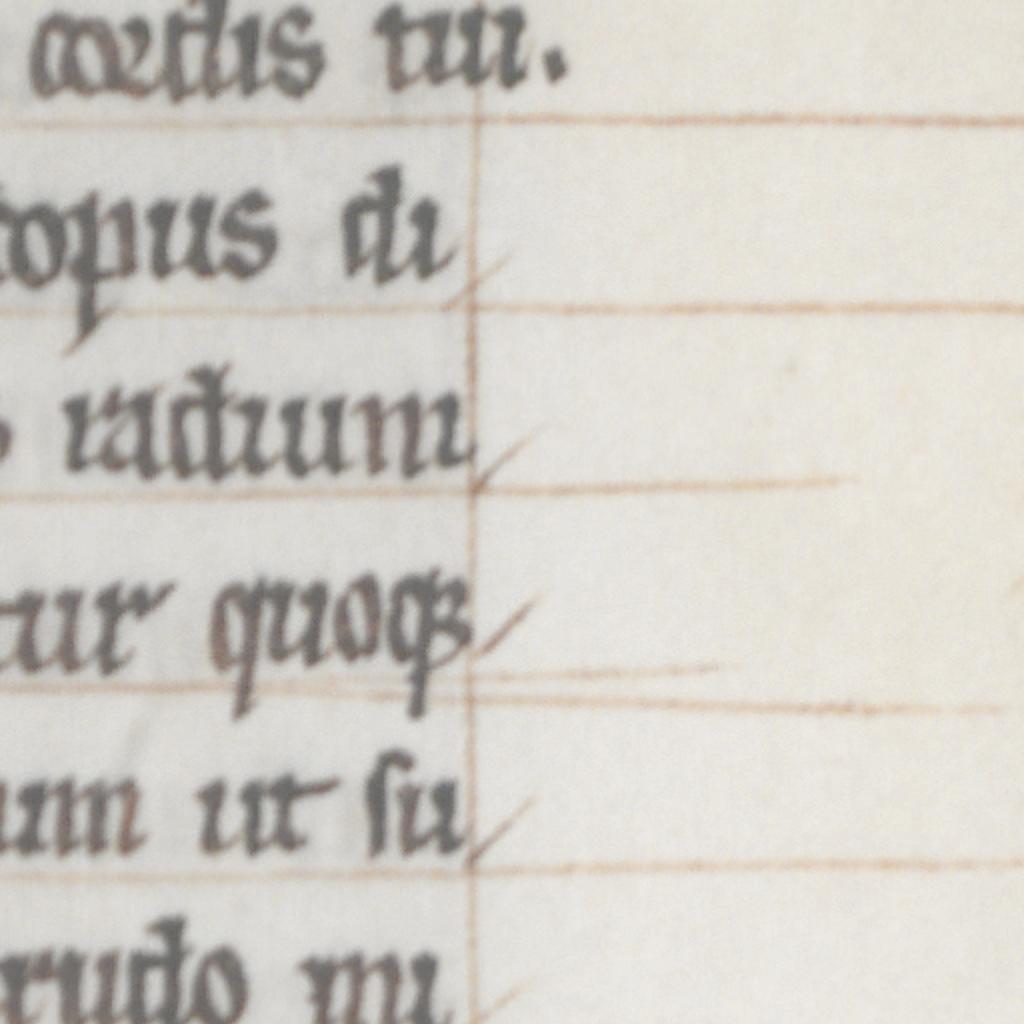 cordis tui.
topus di
radium
tur quoqꝫ
um ut su
rudo mi